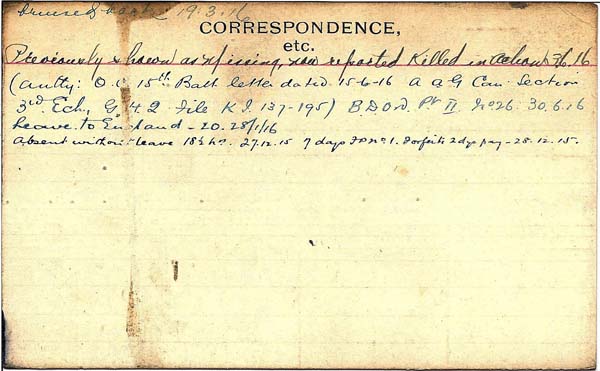 bruised back 19.3.16
CORRESPONDENCE,
etc.
Previously shown as missing, now reported Killed in action 3/6.16
(autty: O.C. 15th Batt letter dated 15-6-16 A A G Can Section
3rd Ech, G H Q File K.I. 137-195) B.D.O.D. Pt II. No 26. 30.6.16
Leave to England - 20. 28/1/16
absent without leave 18½ hrs. 27.12.15 7 days F.P. No 1. Forfeits 2 dys pay - 28.12.15.